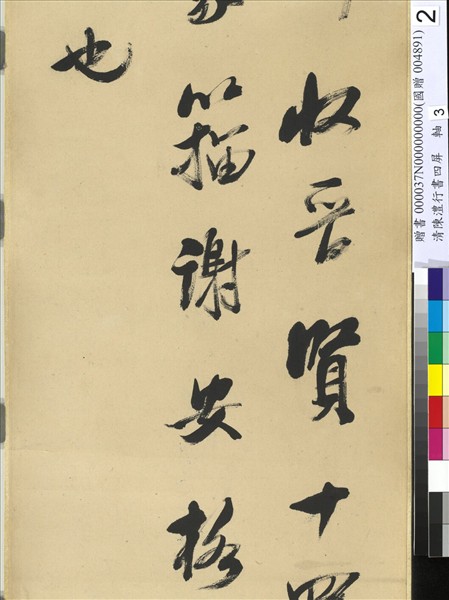 收晉賢十
籀謝安格
也
贈書 000037N000000000(國贈 004891)
清陳澧行書四屏 軸 3
2